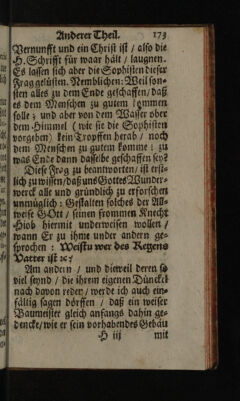 Anderer Theil. 173
Vernunfft und ein Christ ist / also die
H. Schrifft für waar hält / laugnen.
Es lassen sich aber die Sophisten dieser
Frag gelüsten. Nemblichen: Weil son-
sten alles zu dem Ende geschaffen / daß
es dem Menschen zu gutem kommen
solle; und aber von dem Waser ober
dem Himmel (wie sie die Sophisten
vorgeben) kein Tropffen herab / noch
dem Menschen zu gutem komme: zu
was Ende dann dasselbe geschaffen sey?
Diese Frag zu beantworten / ist erst-
lich zu wissen / daß uns Gottes Wunder-
werck alle und gründlich zu erforschen
unmüglich: Gestalten solches der All-
weise GOtt / seinen frommen Knecht
Hiob hiermit underweisen wollen /
wann Er zu ihme under andern ge-
sprochen: Weistu wer des Regens
Vatter ist ꝛc?
Am andern / und dieweil deren so
viel seynd / die ihrem eigenen Dünckel
nach davon reden / werde ich auch ein-
fältig sagen dörffen / daß ein weiser
Baumeister gleich anfangs dahin ge-
dencke / wie er sein vorhabendes Gebäu
H iij mit